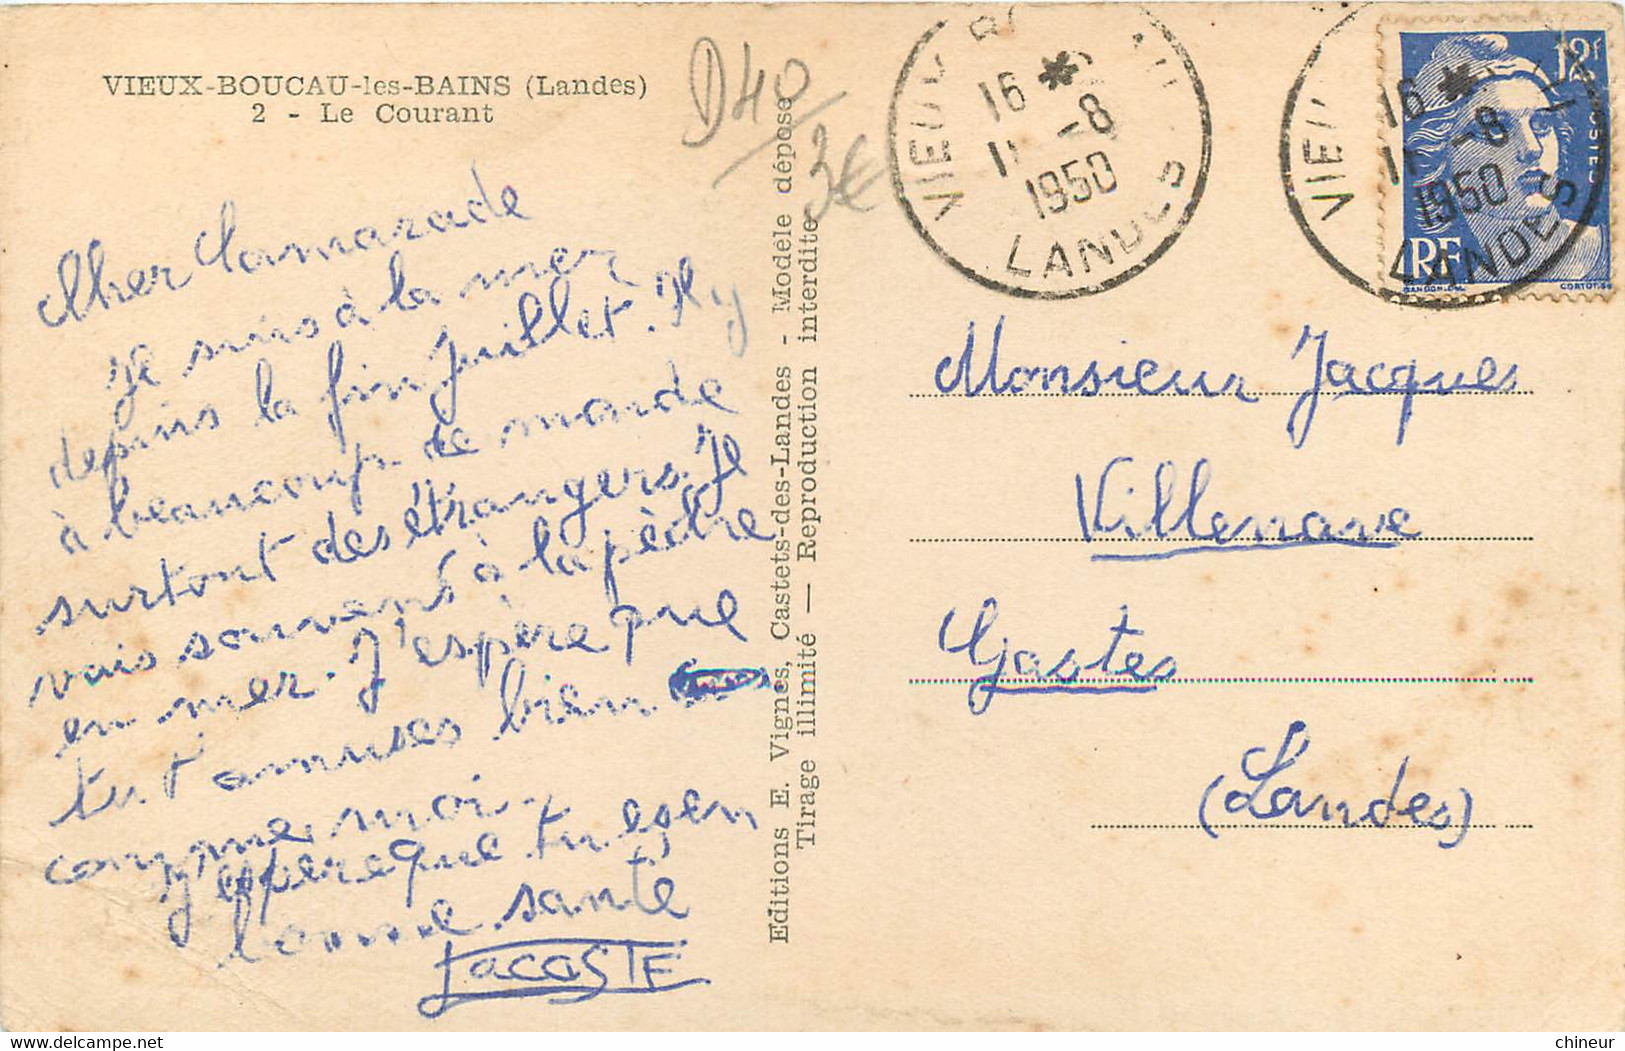 VIEUX-BOUCAU-les-BAINS (Landes)
2 - Le Courant
D40
3€
Cher Camarade
Je suis à la mer
depuis la fin Juillet. Il y
à beaucoup de monde
surtout des étrangers. Je
vais souvent à la pèche
en mer. J'espère que
tu t'amuses bien
comme moi.
J'espere que tu es en
bonne santé
Lacoste
Editions E. Vignes, Castets-des-Landes - Modèle déposé
Tirage illimité — Reproduction interdite
VIEUX B
16 *
11 -8
1950
LANDES
VIEU
16 *
11 -8
1950
LANDES
12f
POSTES
RF
GANDON DEL.
CORTOT SC
Monsieur Jacques
Villenave
Gastes
(Landes)
chineur